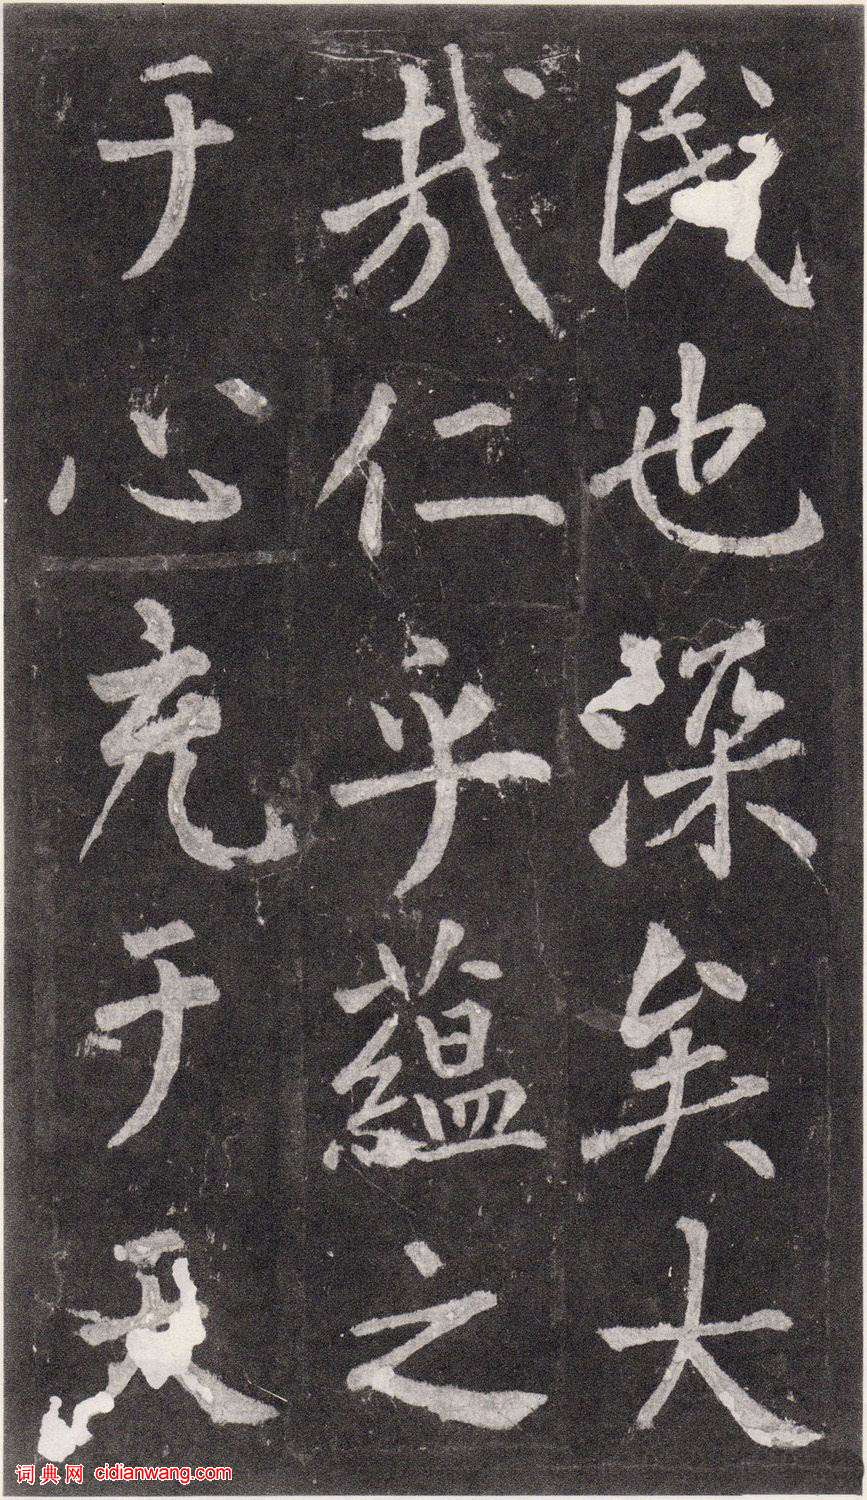 民也深矣大
哉仁乎蕴之
于心充于天
词典网 cidianwang.com